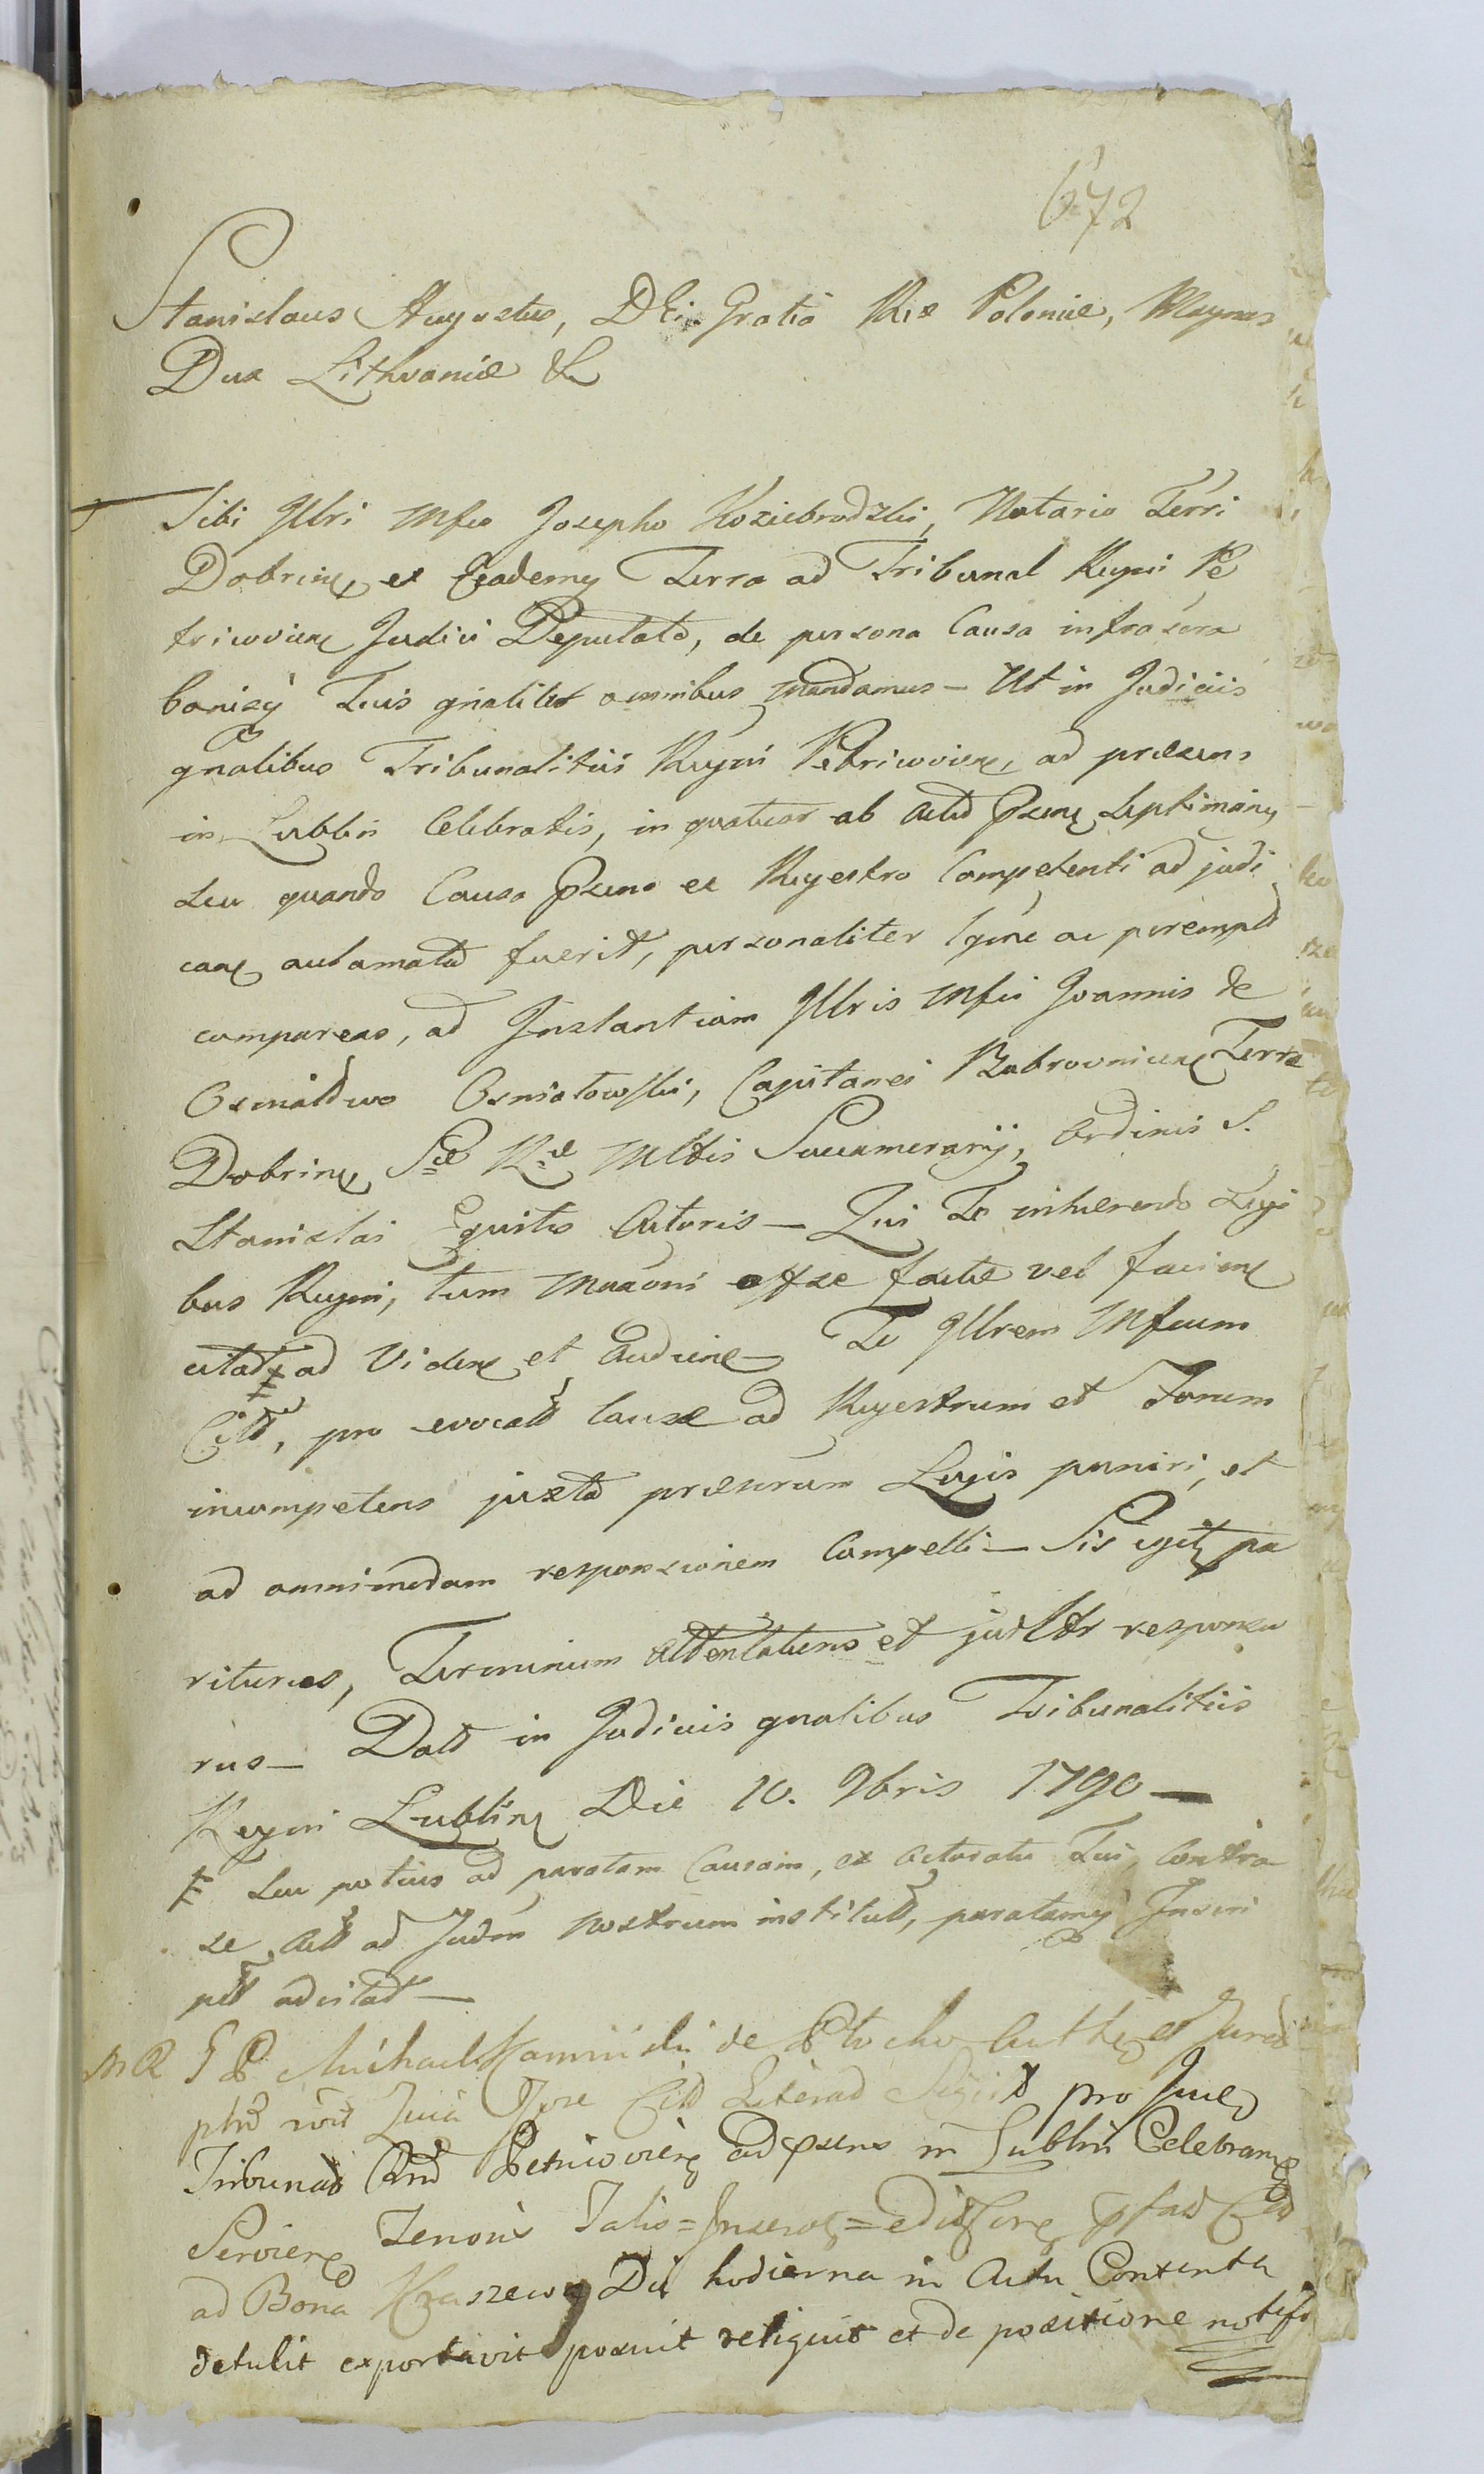 672
Stanislaus Augustus, DEi Gratia Rex Poloniæ, Magnus
Dux Lithvaniæ &
Tibi Jllri Mfco Josepho Koziebrodzki, Notario Terri
Dobrinẽ, ex Eademq Terra ad Tribunal Regni Pe
tricoviens Judici Deputato, de persona Causa infrascra
bonisq Tuis gnaliter omnibus mandamus — Ut in Judiciis
gnalibus Tribunalitiis Regni Petricoviens, ad præsens
in Lublin Celebratis, in quatuor ab actu Psens Septimanis
seu quando Causa Psens ex Regestro Competenti ad judi
cand aclamata fuerit, personaliter lgme ac perempt
compareas, ad Jnstantiam Jllris Mfci Joannis de
Osmiałowo Osmiałowski, Capitanei Bobrovnicens Terræ
Dobrinẽ, Sæ Ræ Mttis Succamerarij, Ordinis S.
Stanislai Equitis Actoris — Qui Te inhærendo Legi
bus Regni, tum Mnxõni ex se factæ vel faciend
citat ‡ ad Vidend et Audiend Te Jllrem Mfcum
Citt, pro evocatt Causæ ad Regestrum et Forum
incompetens juxta præscrum Legis puniri, et
ad omnimodam responsionem Compelli — Sis igitr pa
riturus, Terminum attentaturus et judltr responsu
rus — Datt in Judiciis gnalibus Tribunalitiis
Regni Lublinẽ Die 10. 9bris 1790 —
‡ seu potius ad paratam Causam, ex Actoratu Tui, Contra
se Actt ad Judm nostrum institutt, paratamq Jnscri
ptt adcitat —
M R J P Michael Kaminski de Płocko Auth et Jurat
Citt Literas pro Judẽ
Tribunal Petricoviens ad Psens in Lublin Celebranẽ
Serviens Tenoris Talis = Jnseratr =
ad Bona Die hodierna in Actu Contenta
detulit exportavit posuit reliquit et de positione notifi